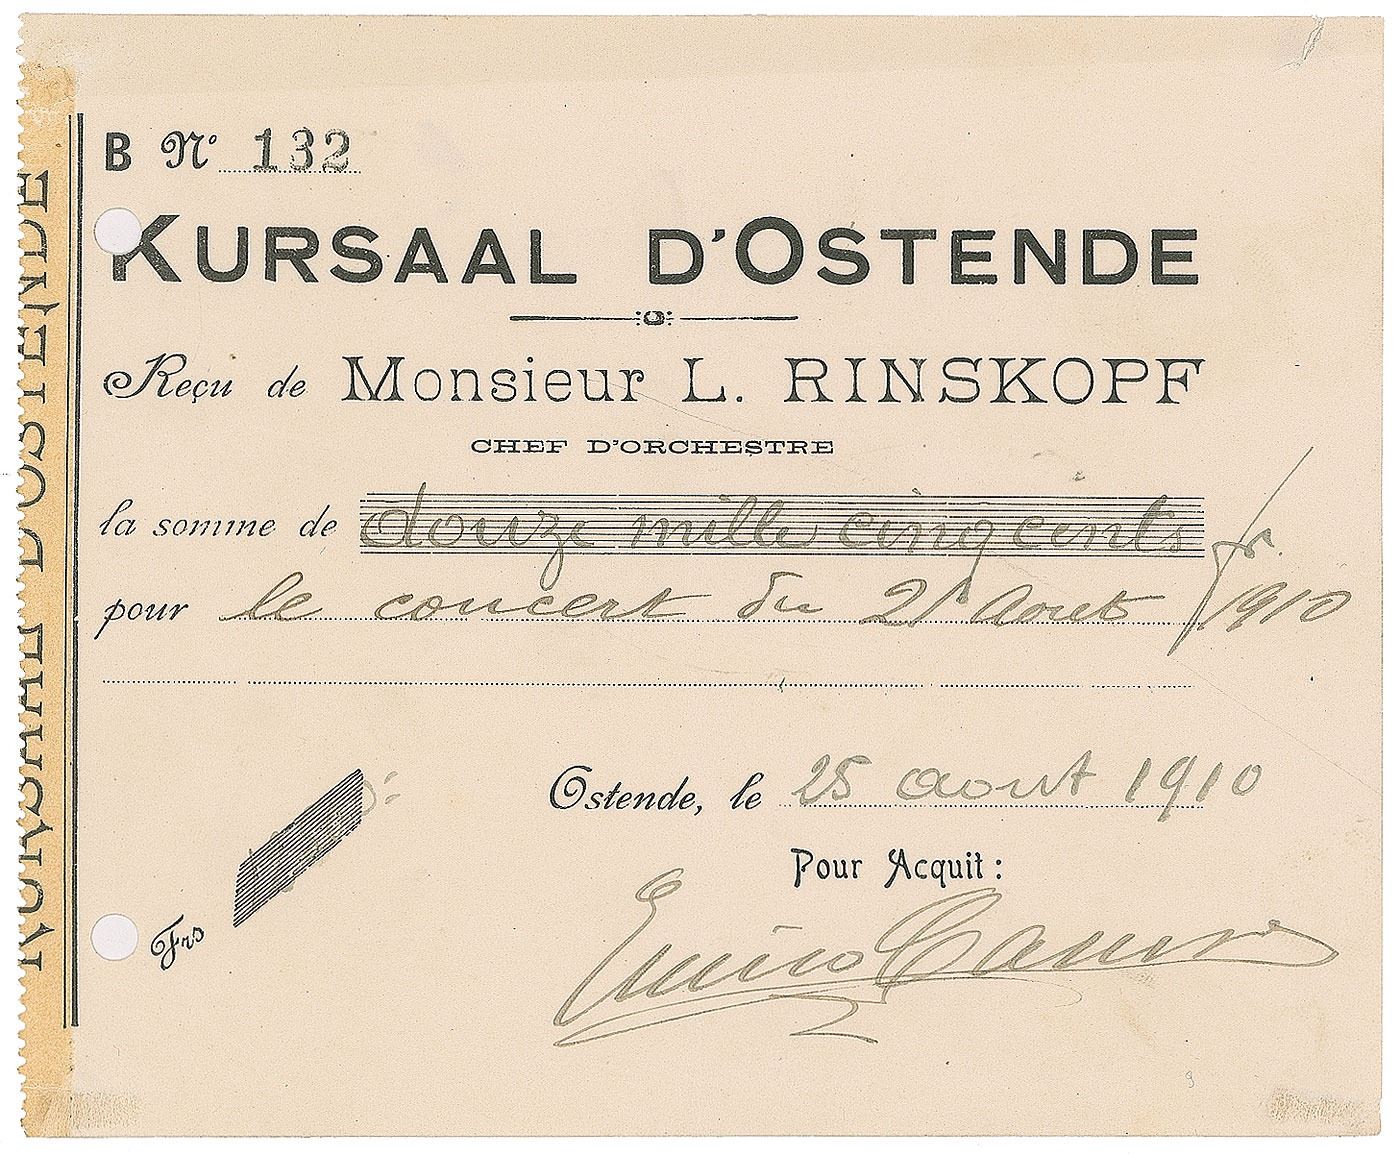 B Nº 132
KURSAAL D'OSTENDE
Reçu de Monsieur L. RINSKOPF
CHEF D'ORCHESTRE
la somme de douze mille cinq cents fr.
pour le concert du 21 Aout 1910
Ostende, le 25 aout 1910
Pour Acquit:
Frs
Enrico Caruso
KURSAAL D'OSTENDE